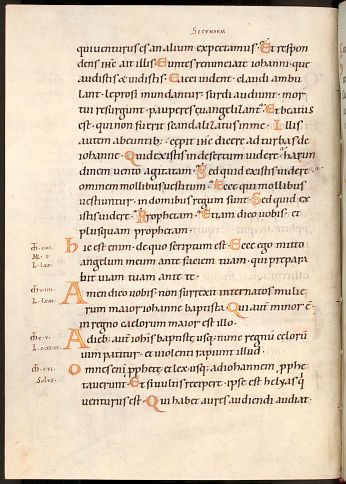 SECUNDUM
qui venturus es. an alium expectamus. Et respon
dens ihc ait illis. Euntes renunciate iohanni. que
audistis & vidistis. Ceci vident. claudi ambu
lant. leprosi mundantur. surdi audiunt. mor
tui resurgunt. pauperes euangelizant. Et beatus
est. qui non fuerit scandalizatus in me. Illis
autem abeuntib; cepit ihc dicere ad turbas de
iohanne. Quid existis in desertum videre. harun
dinem vento agitatam. Sed quid existis videre
hominem mollibus vestitum. Ecce qui mollibus
vestiuntur. in domibus regum sunt. Sed quid ex
istis videre. Prophetam. Etiam dico vobis. et
plus quam prophetam.
hic est enim. de quo scriptum est. Ecce ego mitto
angelum meum ante faciem tuam. qui prepara
bit viam tuam ante te.
Amen dico vobis. non surrexit inter natos mulie
rum maior iohanne baptista. Qui aut minor e
in regno caelorum maior est illo.
A dieb; aut iohis baptiste usq; nunc regnu celoru
uim patitur. et violenti rapiunt illud.
Omnes eni pphete et lex. usq; ad iohannem pphe
taverunt. Et si vultis recipere. ipse est helyas q
venturus est. Qui habet aures audiendi audiat.